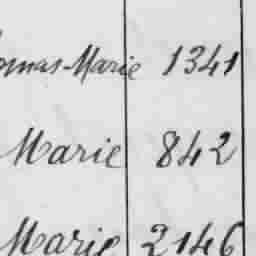 omas-Marie 1341
Marie 842
Marie 2146